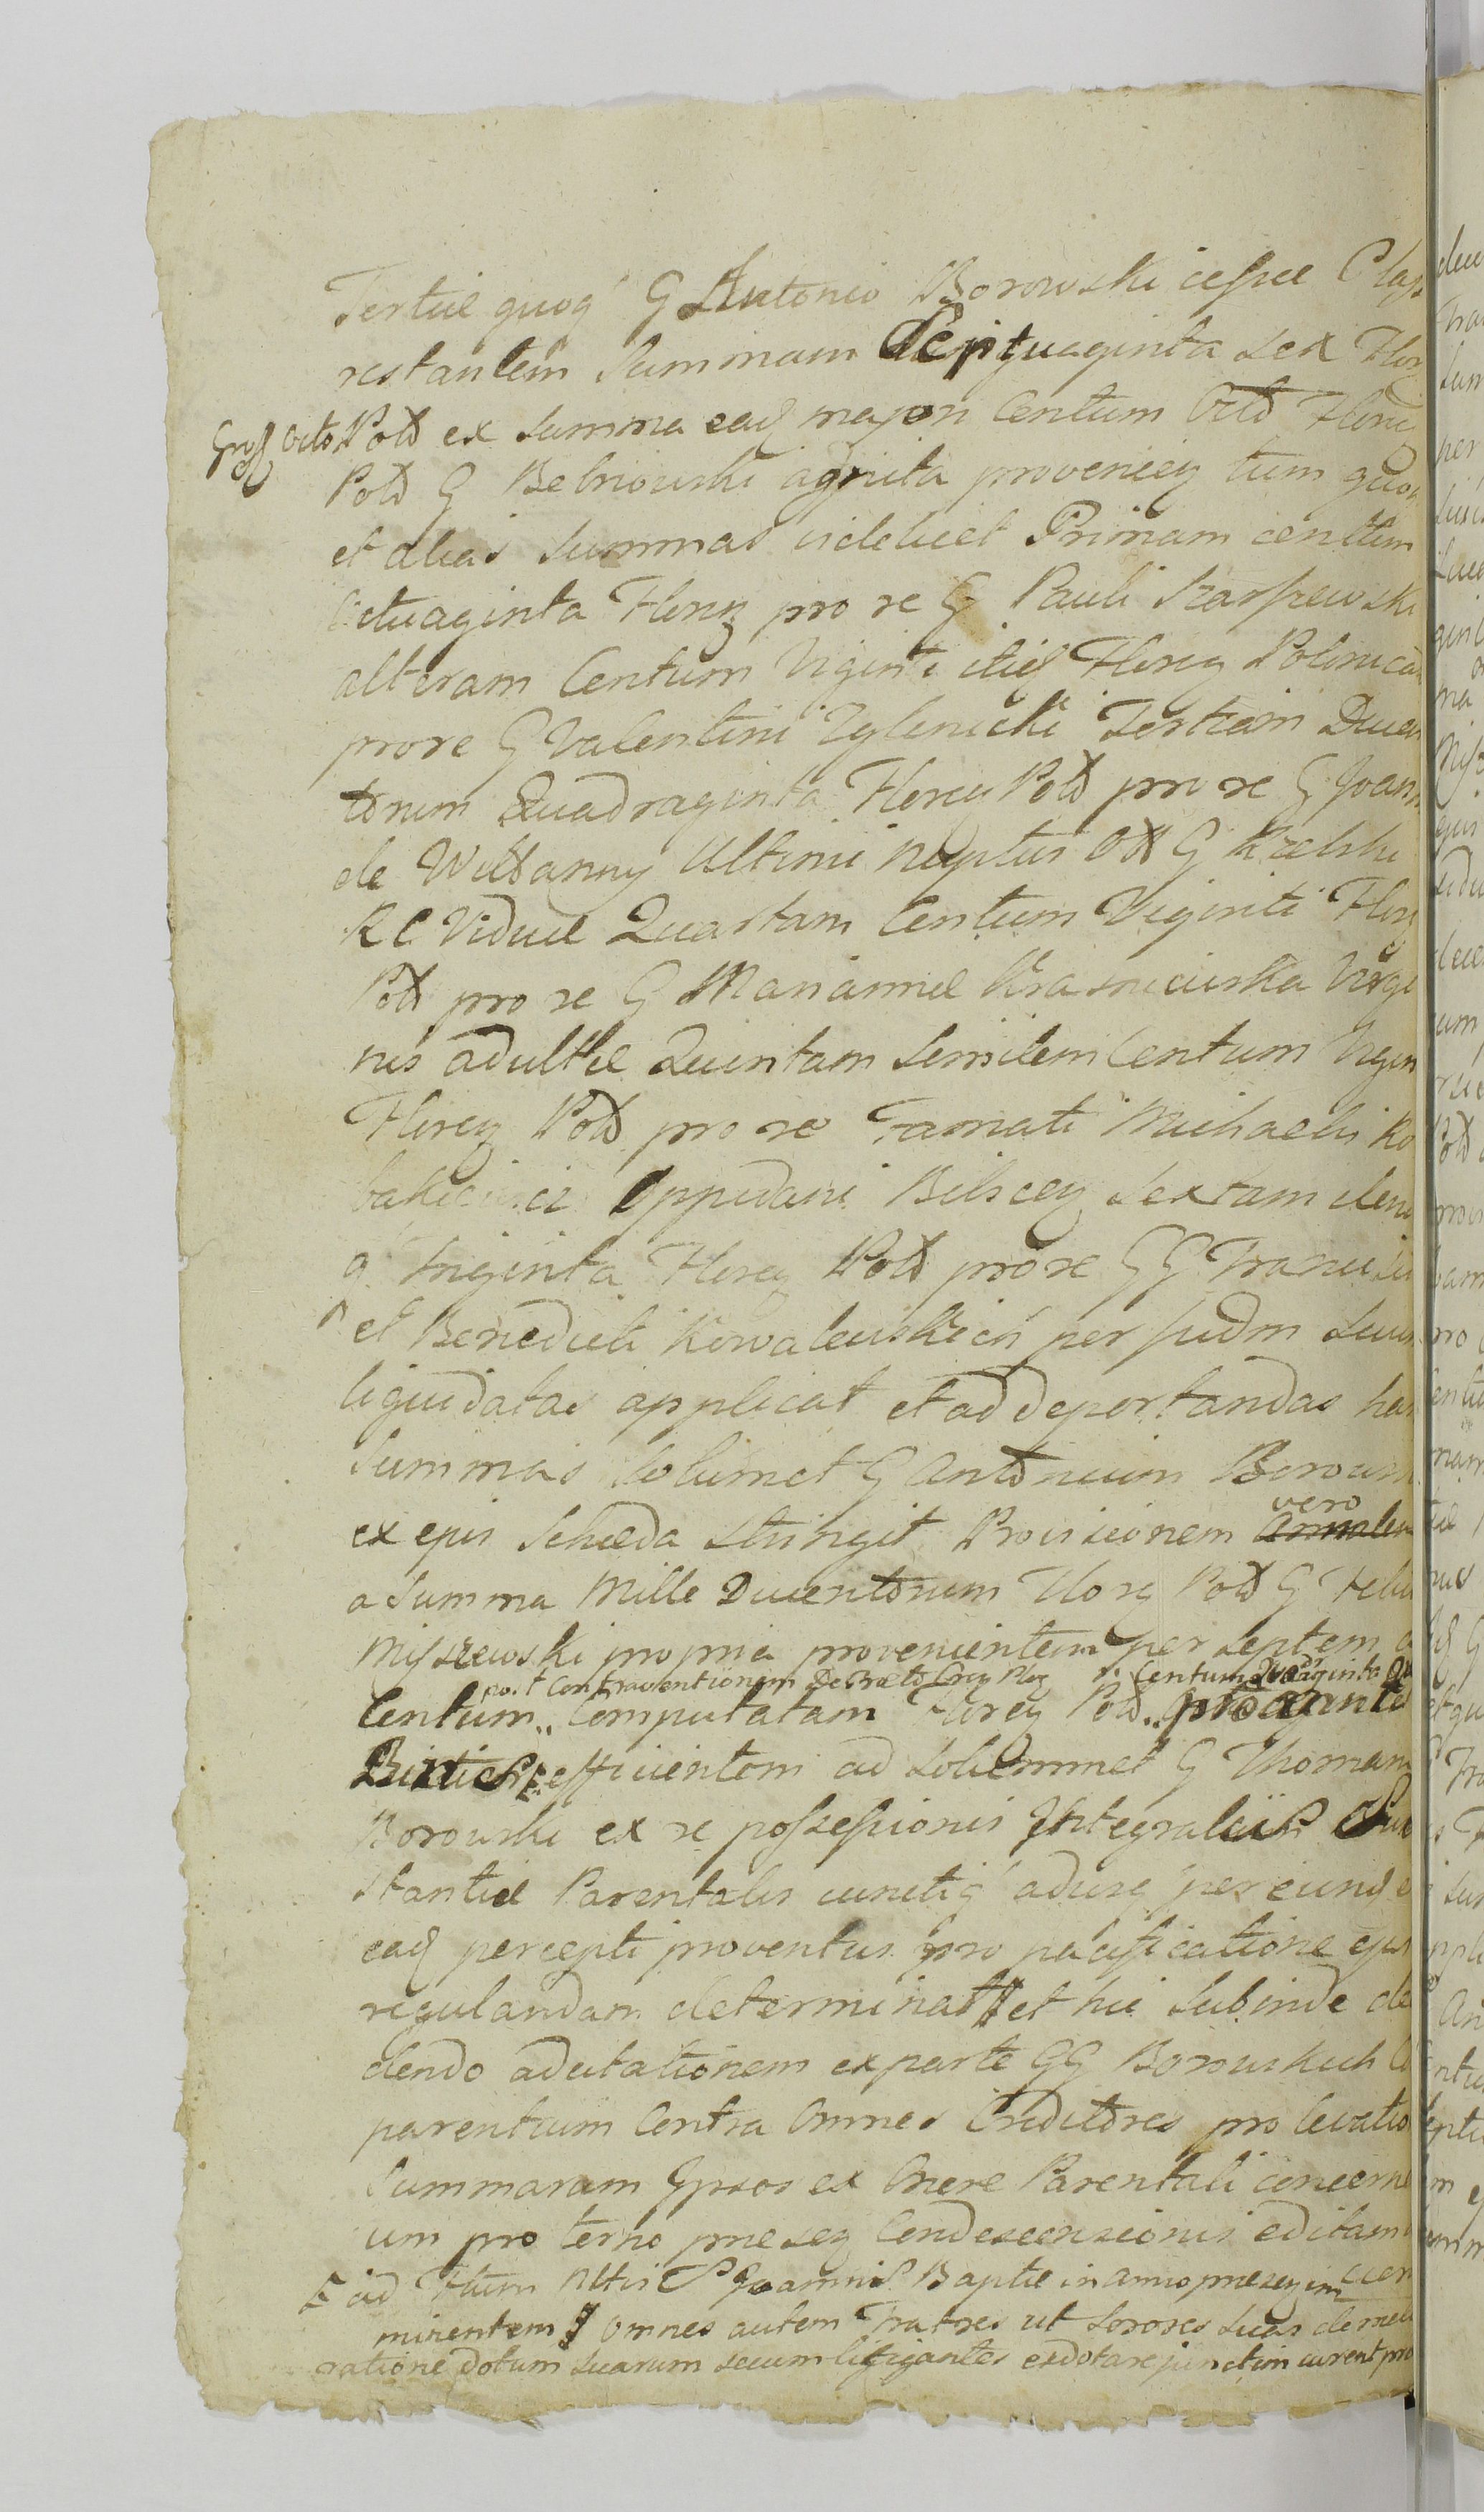 Tertiæ quoq G Antonio Borowski cessæ Class
restantem Summam Septuaginta sex Flor
Gross Octo Pold ex summa eadq majori Centum Octo Floreg
Pold G Belnowski agnita provenieg tum quoq
et alias Summas videlicet Primam centum
Octuaginta Floreg pro re G Pauli Szarszewski
alteram Centum Viginti itidq Floreg Polonican
pro re G Valentini Zglenicki Tertiam Ducen
torum Quadraginta Floreg Pold pro re G Joann
de Ultimi Nuptus G Kzelski
R C Viduæ Quartam Centum Viginti Floreg
Pold pro re G Mariannæ Virgi
nis adultæ Quintam Similem Centum Vigin
Floreg Pold pro re Famati Michaelis Ro
Oppidani Bilscey Sextam deni
q triginta Floreg Pold pro re GG Francisci
et Benedicti Kowalewskich per Judm Suum
liquidatas applicat et ad deportandas has
Summas solumet G Antonium Borows
ex ejus Scheda stringit Provisionem vero annalem
a Summa Mille Ducentorum Floreg Pold G Felic
Miszewski propria provenientem per Septem a
post Contraventionem Decreto Crey Ploc Centum Quadraginta
Centum Computatam Floreg Pold
efficientem ad solummet G Thomam
Borowski ex re possessionis Integralis Sub
stantiæ Parentalis cunctiq adusq per eundq e
eadq percepti proventus pro pacificatione ejus
regulandam determinat et hic subinde de
dendo adcitationem ex parte GG Borowskich Co
parentium Contra Omnes Creditores pro levatio
Summarum Ipsos ex Onere Parentali concerne
um pro terno præseg Condescensionis editam
ad Ftum Nltis S Joannis Baptæ in anno præseg in
minentem omnes autem Fratres ut Sorores Suas
ratione dotum suarum secum litigantes exdotare junctim curent pro